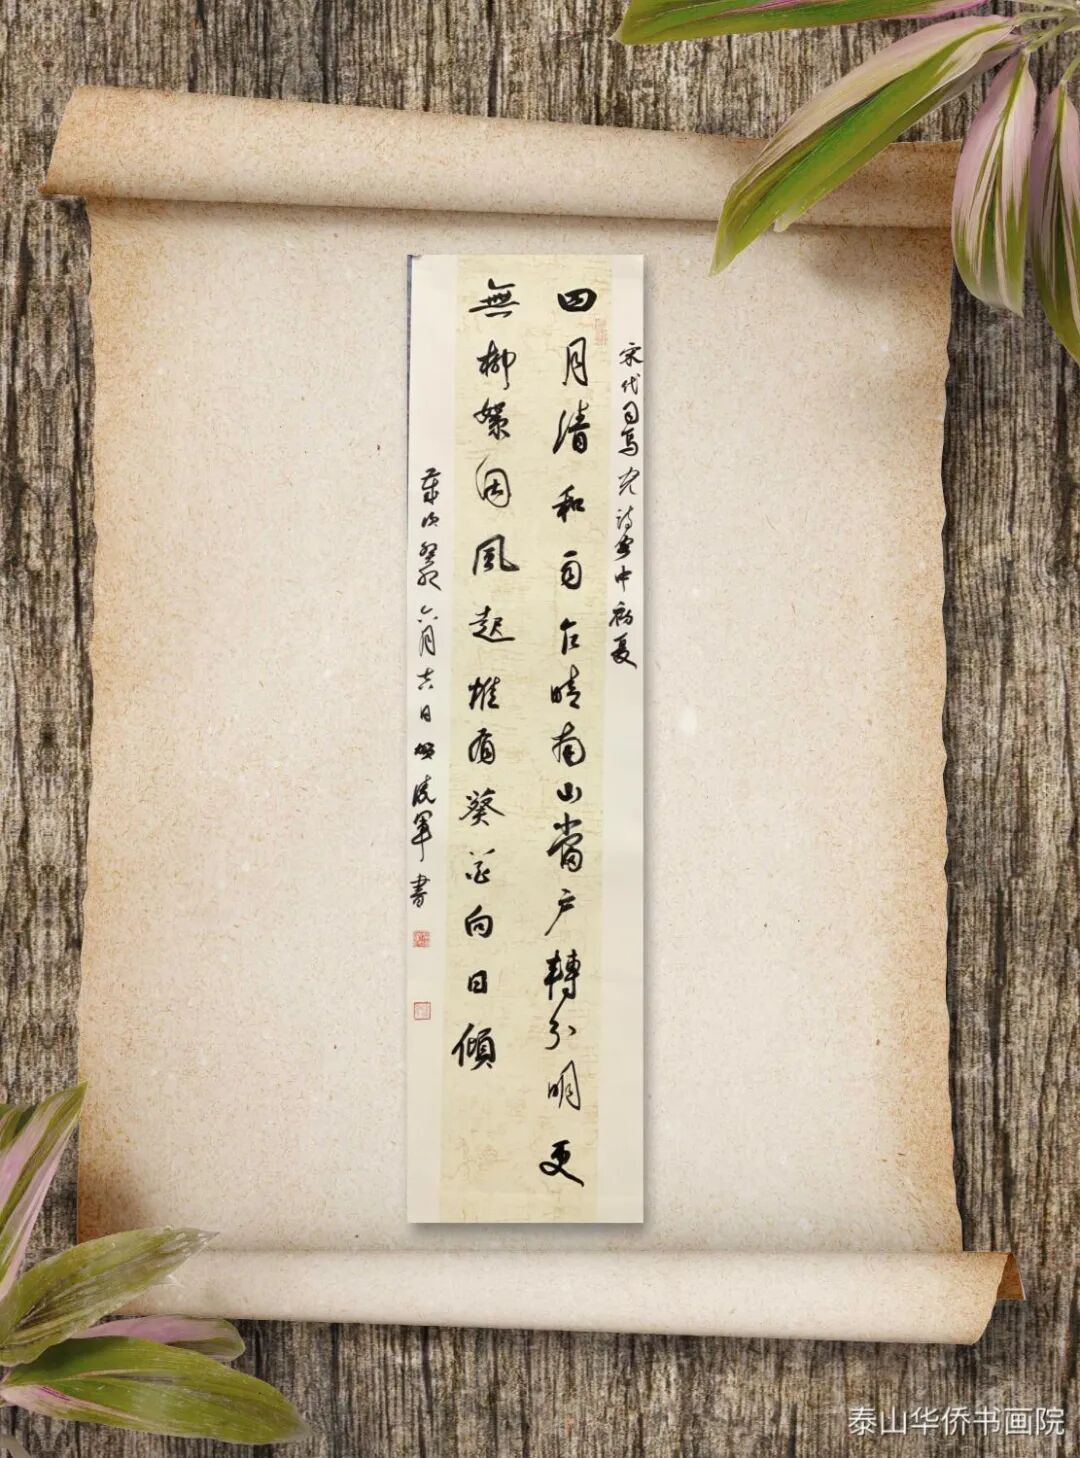 宋代司馬光詩客中初夏
四月清和雨乍晴南山當户轉分明更
無柳絮因風起惟有葵花向日傾
歲次癸卯六月日軍書
泰山华侨书画院